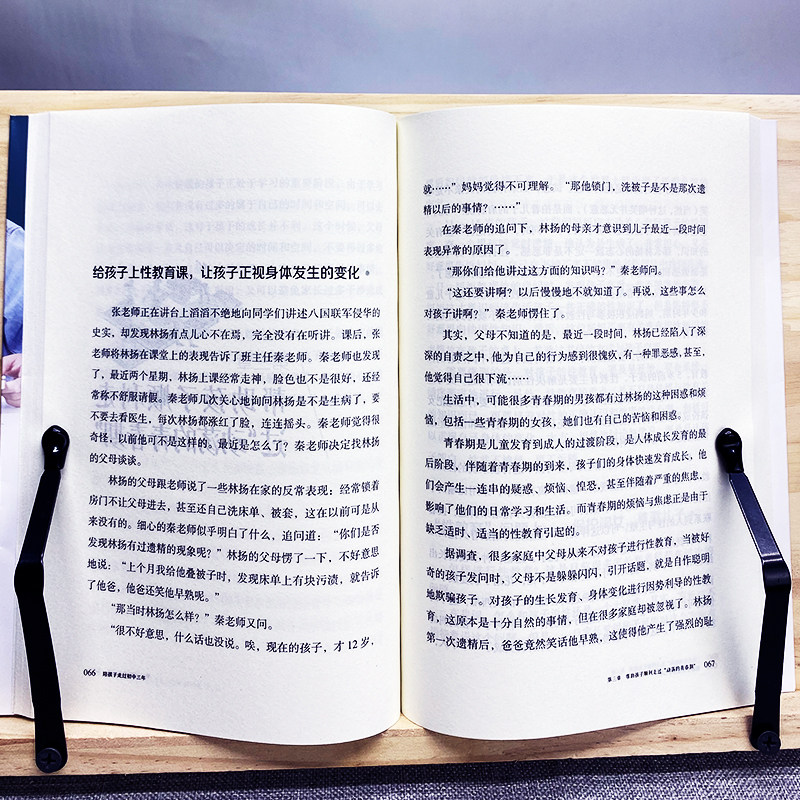 给孩子上性教育课，让孩子正视身体发生的变化
张老师正在讲台上滔滔不绝地向同学们讲述八国联军侵华的
史实，却发现林扬有点儿心不在焉，完全没有在听讲。课后，张
老师将林扬在课堂上的表现告诉了班主任秦老师。秦老师也发现
了，最近两个星期，林扬上课经常走神，脸色也不是很好，还经
常称不舒服请假。秦老师几次关心地询问林扬是不是生病了，要
不要去看医生，每次林扬都涨红了脸，连连摇头。秦老师觉得很
奇怪，以前他可不是这样的，最近是怎么了？秦老师决定找林扬
的父母谈谈。
林扬的父母跟老师说了一些林扬在家的反常表现：经常锁着
房门不让父母进去，甚至还自己洗床单、被套，这在以前可是从
来没有的。细心的秦老师似乎明白了什么，追问道：“你们是否
发现林扬有过遗精的现象呢？”林扬的父母愣了一下，不好意思
地说：“上个月我给他叠被子时，发现床单上有块污渍，就告诉
了他爸，他爸还笑他早熟呢。”
“那当时林扬怎么样？”秦老师又问。
“很不好意思，什么话也没说。唉，现在的孩子，才12岁，
066 陪孩子走过初中三年
就……”妈妈觉得不可理解。“那他锁门，洗被子是不是那次遗
精以后的事情？……”
在秦老师的追问下，林扬的母亲才意识到儿子最近一段时间
表现异常的原因了。
“那你们给他讲过这方面的知识吗？”秦老师问。
“这还要讲啊？以后慢慢地不就知道了。再说，这些事怎么
对孩子讲啊？”秦老师愣住了。
其实，父母不知道的是，最近一段时间，林扬已经陷入了深
深的自责之中，他为自己的行为感到很愧疚，有一种罪恶感，甚至，
他觉得自己很下流……
生活中，可能很多青春期的男孩都有过林扬的这种困惑和烦
恼，包括一些青春期的女孩，她们也有自己的苦恼和困惑。
青春期是儿童发育到成人的过渡阶段，是人体成长发育的最
后阶段，伴随着青春期的到来，孩子们的身体快速发育成长，他
们会产生一连串的疑惑、烦恼、惶恐，甚至伴随着严重的焦虑，
影响了他们的日常学习和生活。而青春期的烦恼与焦虑正是由于
缺乏适时、适当的性教育引起的。
据调查，很多家庭中父母从来不对孩子进行性教育，当被好
奇的孩子发问时，父母不是躲躲闪闪，引开话题，就是自作聪明
地欺骗孩子。对孩子的生长发育、身体变化进行因势利导的性教
育，这原本是十分自然的事情，但在很多家庭却被忽视了。林扬
第一次遗精后，爸爸竟然笑话他早熟，这使得他产生了强烈的耻
章 帮助孩子顺利走过“动荡的青春期” 067